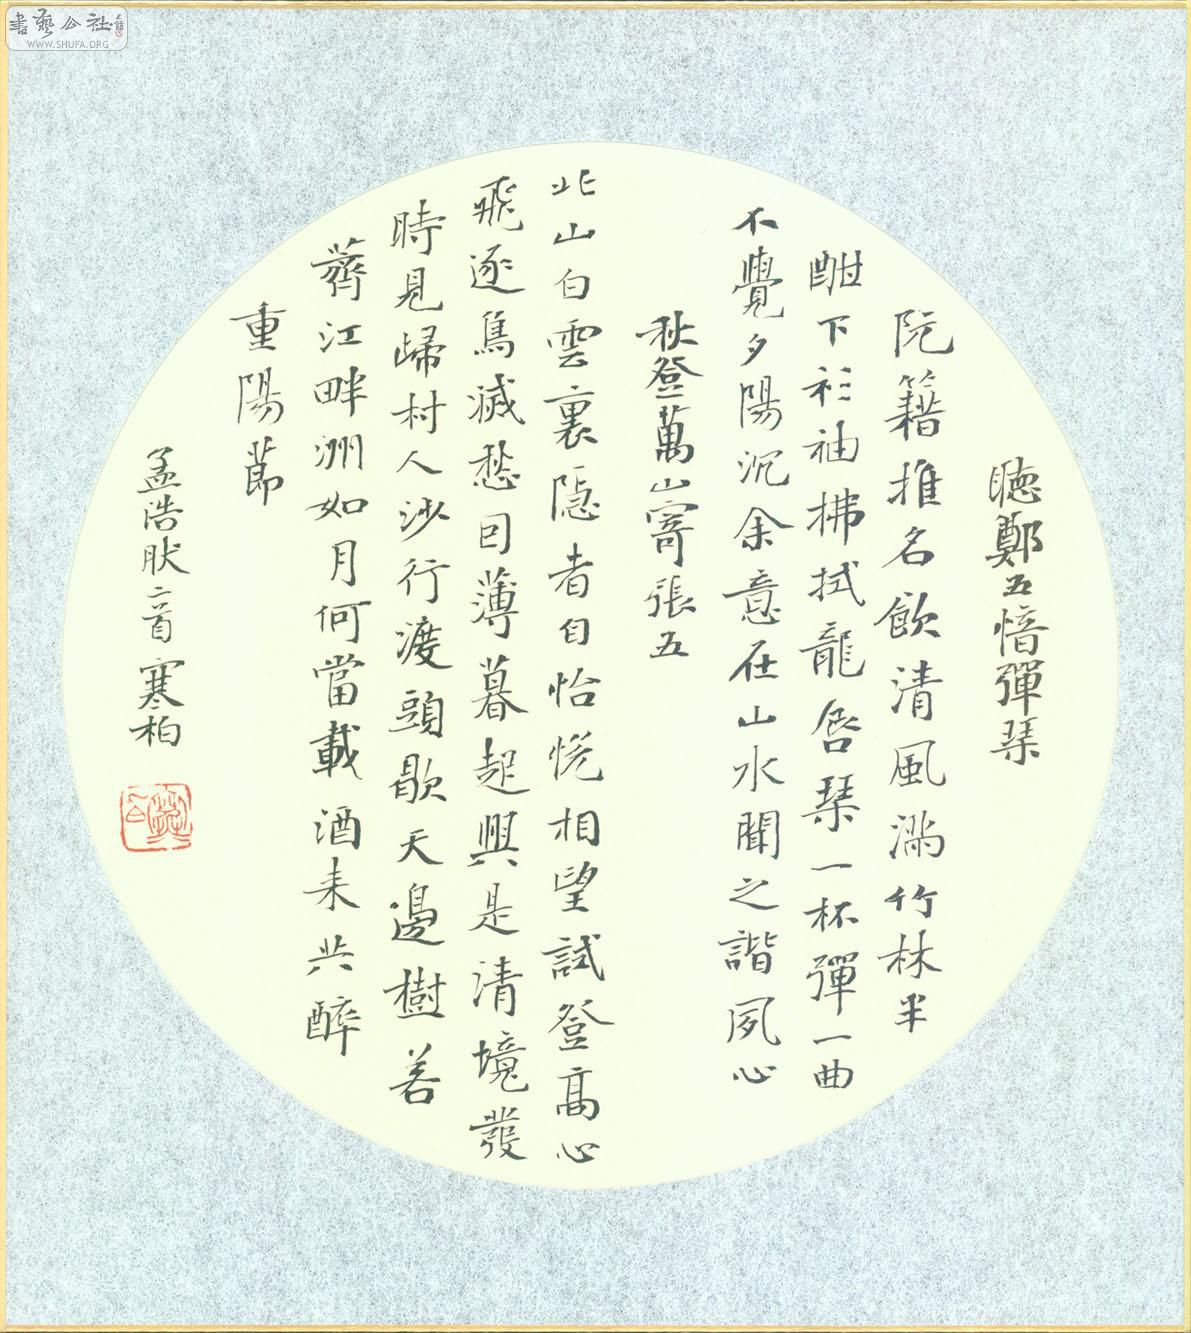 書藝公社
WWW.SHUFA.ORG
聽鄭五愔彈琴
阮籍推名飲清風滿竹林半
酣下衫袖拂拭龍唇琴一杯彈一曲
不覺夕陽沉余意在山水聞之諧夙心
秋登萬山寄張五
北山白雲裏隱者自怡悅相望試登高心
飛逐鳥滅愁因薄暮起興是清境發
時見歸村人沙行渡頭歇天邊樹若
薺江畔洲如月何當載酒來共醉
重陽節
孟浩肰二首寒柏